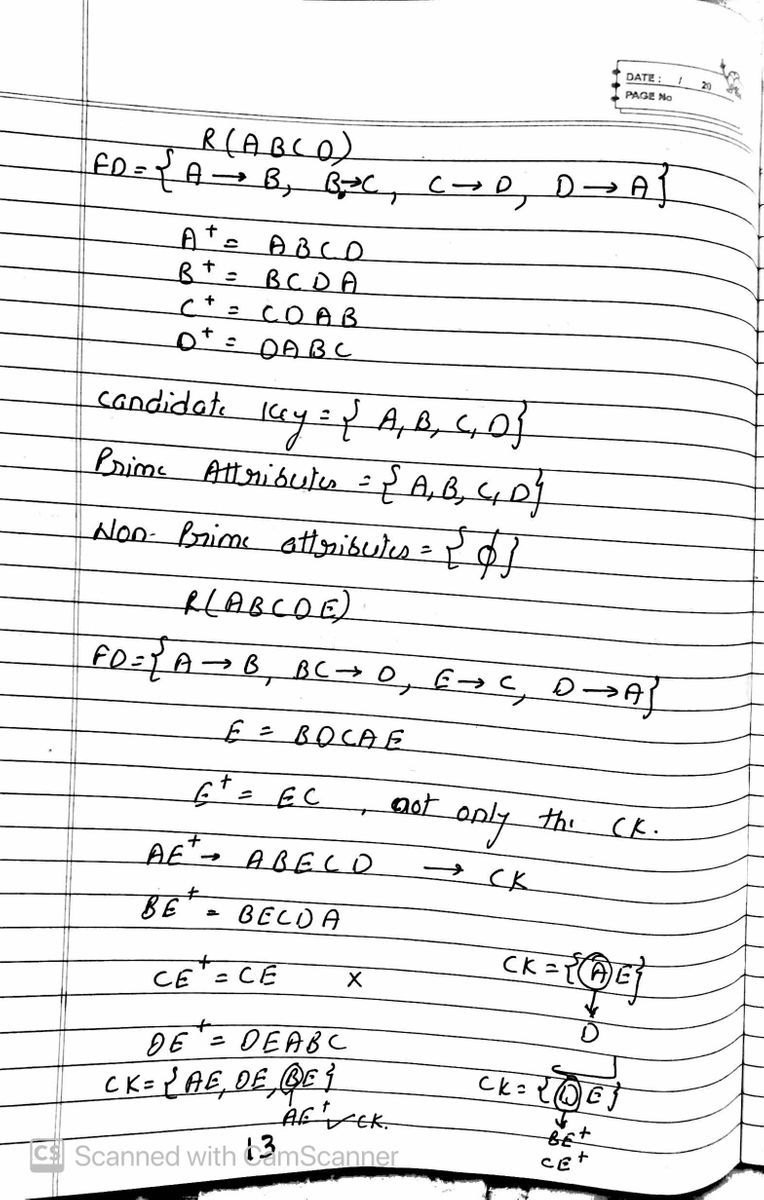 DATE: / 20
PAGE No
R(ABCD)
FD = { A → B, B→C, C → D, D → A}
A⁺ = ABCD
B⁺ = BCDA
C⁺ = CDAB
D⁺ = DABC
Candidate Key = { A, B, C, D}
Prime Attributes = { A, B, C, D}
Non-Prime attributes = { ϕ }
R(ABCDE)
FD = { A → B, BC → D, E → C, D → A}
E = BDCAE
E⁺ = EC , not only the CK.
AE⁺ → ABECD → CK
BE⁺ = BECDA
CE⁺ = CE X CK = {AE}
↓
D
DE⁺ = DEABC
CK = { AE, DE, BE } CK = { DE }
AE⁺ ✓ CK. ↓
BE⁺
CE⁺
13
CS Scanned with CamScanner